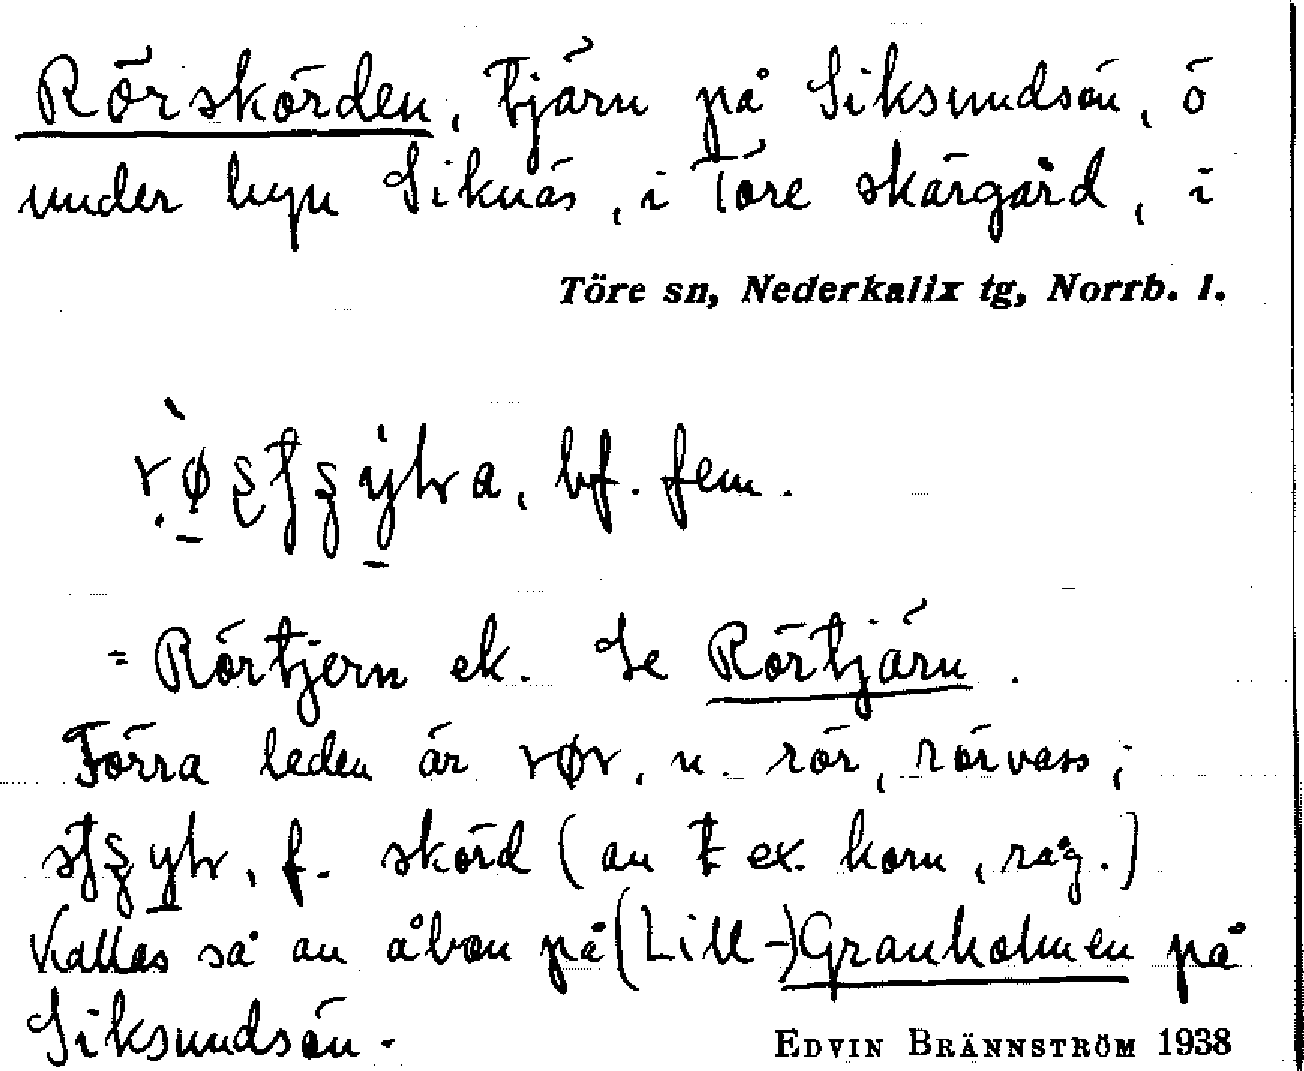 Rörskörden, tjärn på Siksundsön, ö
under byn Siknäs, i Töre skärgård, i
Töre sn, Nederkalix tg, Norrb. l.
bf. fem.
= Rörtjern ek. Se Rörtjärn.
Förra leden är rør, n. rör, rörvass;
f. skörd (av t ex. korn, råg.)
Kallas så av åbon på (Lill-)Granholmen på
Siksundsön.
EDVIN BRÄNNSTRÖM 1938